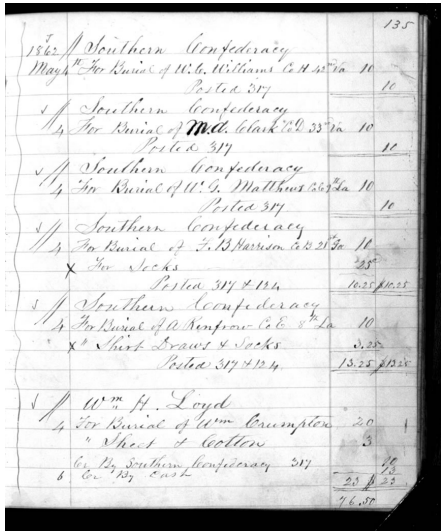 135
1862 // Southern Confederacy
May 4th For Burial of W. C. Williams Co H 42nd Va 10
Posted 317 10
s // Southern Confederacy
4 For Burial of M. A. Clark Co D 33rd Va 10
Posted 317 10
s // Southern Confederacy
4 For Burial of W. J. Matthews Co C 9th La 10
Posted 317 10
s // Southern Confederacy
4 For Burial of F. B Harrison Co B 28th Ga 10
x For Socks 25
Posted 317 & 124 10.25 $10.25
s // Southern Confederacy
4 For Burial of A Renfrow Co E 8th La 10
x " Shirt Draws & Socks 3.25
Posted 317 & 124 13.25 $13.25
s // Wm H. Loyd
4 For Burial of Wm Crumpton 20
" Sheet & Cotton 3
Cr By Southern Confederacy 317 10
6 Cr By Cash 13
23 $ 23
76.50